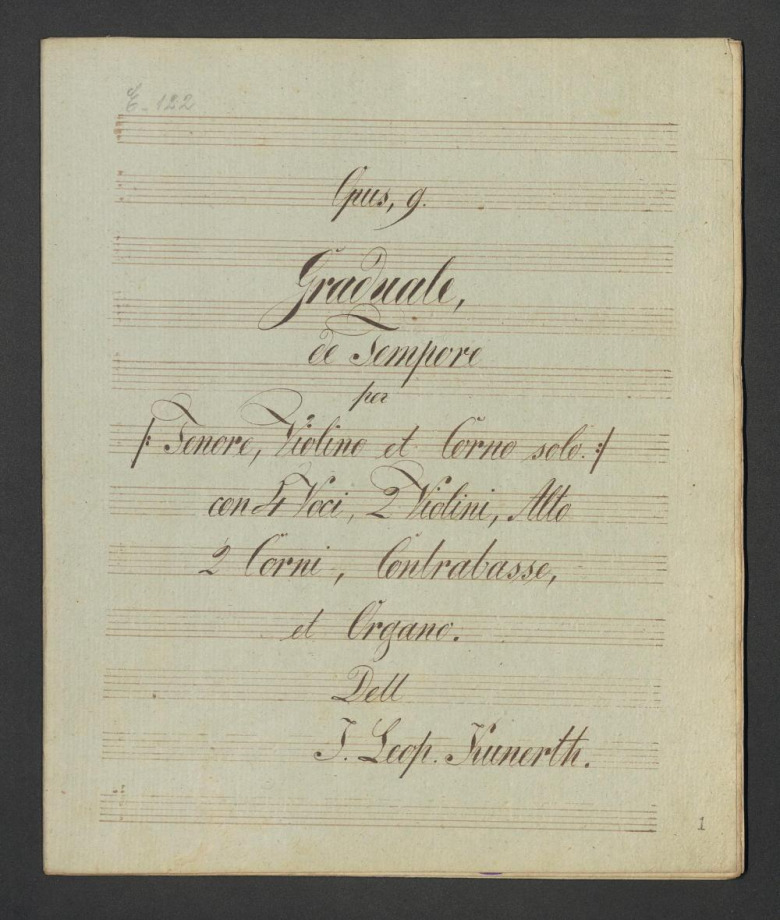 E-122
Opus, 9.
Graduale,
de Tempore
per
/: Tenore, Violino et Corno solo. :/
con 4 Voci, 2 Violini, Alto
2 Corni, Contrabasse,
et Organo.
Dell
J. Leop. Kunerth.
1